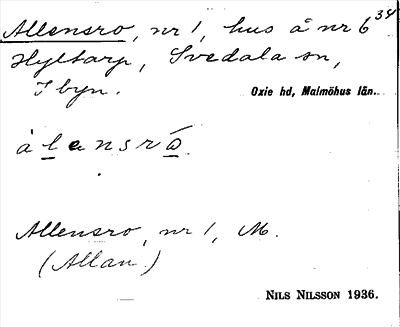 Allensro, nr 1, hus å nr 6³⁴
Hyltarp, Svedala sn,
I byn.
Oxie hd, Malmöhus län.
å l e n s r ώ.
Allensro, nr 1, M.
(Allan)
NILS NILSSON 1936.